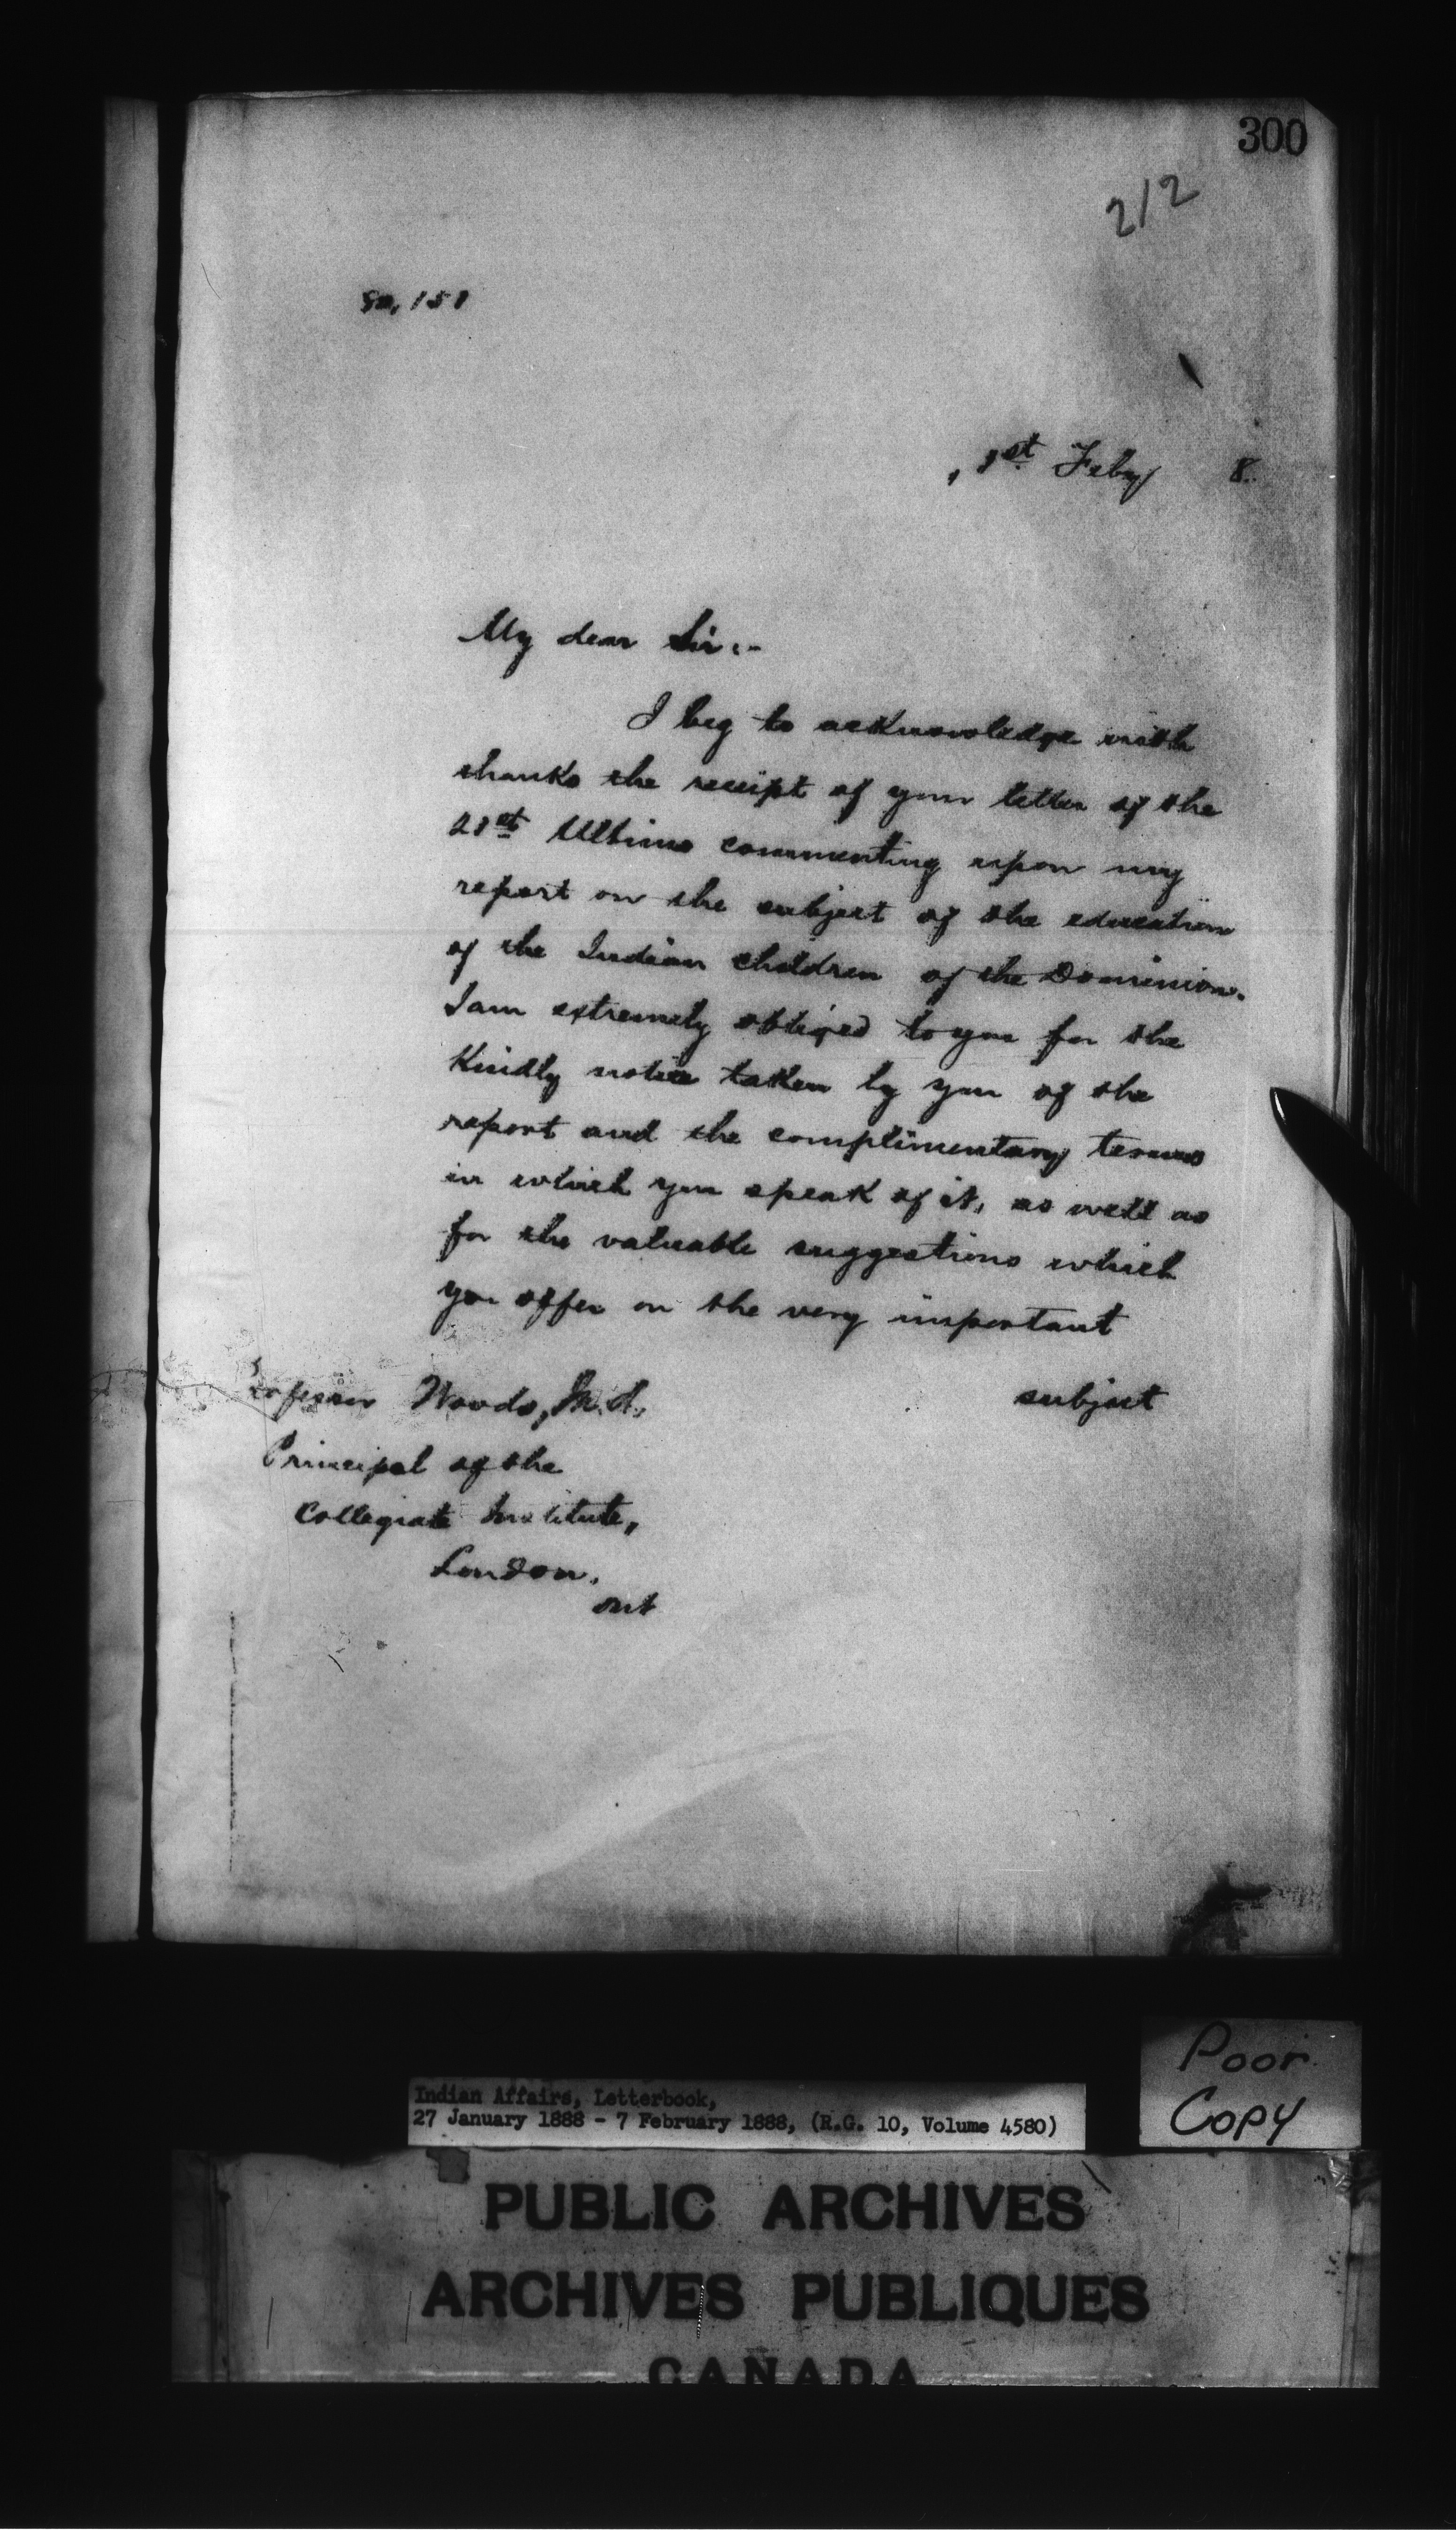 300
212
50,151
1st Feby 8.
My dear Sir:-
I beg to acknowledge with
thanks the receipt of your letter of the
21st Ultimo commenting upon my
report on the subject of the education
of the Indian children of the Dominion.
I am extremely obliged to you for the
Kindly notice taken by you of the
report and the complimentary terms
in which you speak of it, as well as
for the valuable suggestions which
you offer on the very important
subject
Professor Woods, M.A.,
Principal of the
Collegiate Institute,
London.
Ont
Poor
Copy
Indian Affairs, Letterbook,
27 January 1888 - 7 February 1888, (R.G. 10, Volume 4580)
PUBLIC ARCHIVES
ARCHIVES PUBLIQUES
CANADA